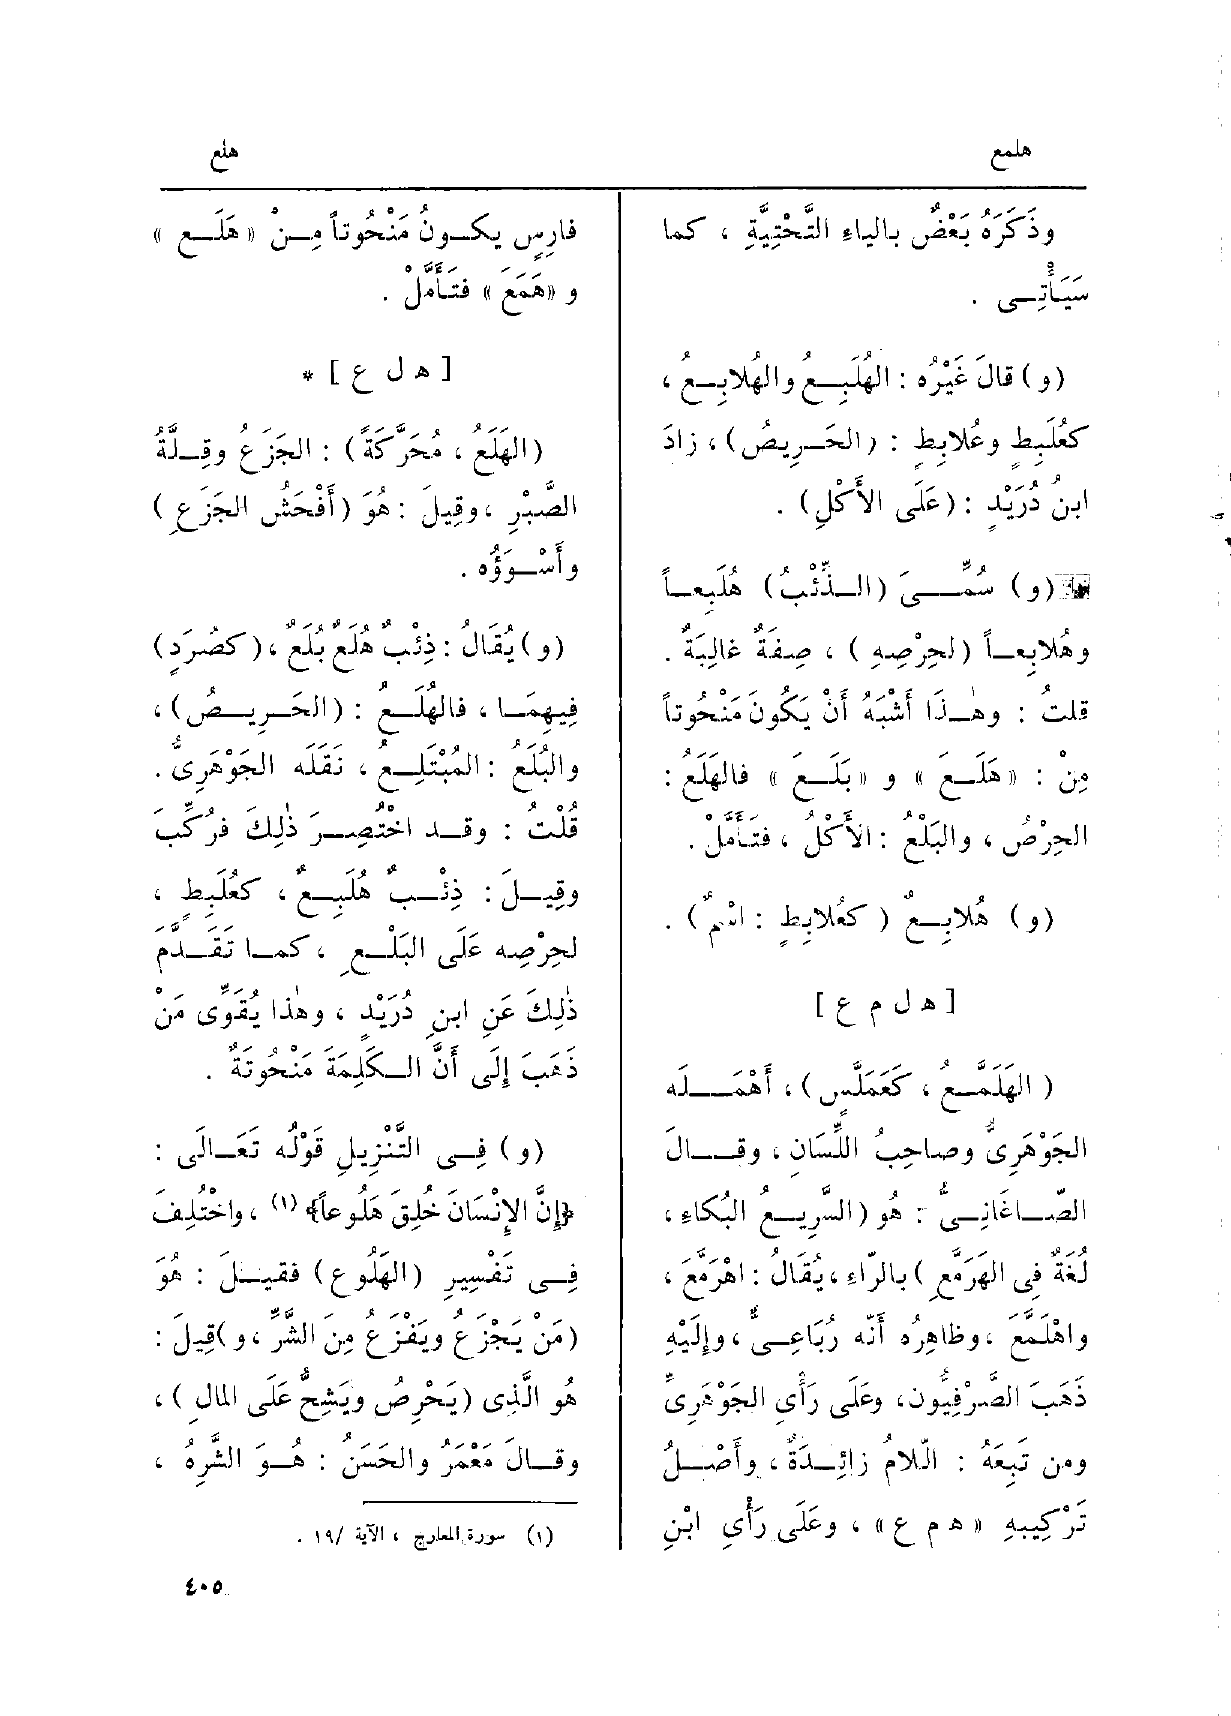 هلمع
هلع
وذَكَرَهُ بَعْضٌ بالياءِ التَّحْتِيَّةِ ، كما
سَيَأْتِـى .
(و) قالَ غَيْرُه : الهُلَبِـعُ والهُلابِـعُ ،
كعُلَبِطٍ وعُلابِطٍ : (الحَـرِيصُ) ، زادَ
ابنُ دُرَيْدٍ : (عَلَى الأَكْلِ) .
(و) سُمِّـىَ (الـذِّئْبُ) هُلَبِعـاً
وهُلابِعـاً (لحِرْصِه) ، صِفَةٌ غالِبَةٌ .
قلتُ : وهـٰذا أَشْبَهُ أَنْ يَكُونَ مَنْحُوتاً
مِنْ : «هَلَـعَ» و «بَلَـعَ» فالهَلَعُ :
الحِرْصُ ، والبَلْعُ : الأَكْلُ ، فتَأَمَّلْ .
(و) هُلابِـعٌ (كعُلابِطٍ : اسْمٌ) .
[ ه ل م ع ]
(الهَلَمَّـع ، كعَمَلَّسٍ) ، أَهْمَـلَه
الجَوْهَرِىُّ وصاحِبُ اللِّسَان ، وقـالَ
الصّـاغَانِـىُّ : هُو (السَّرِيـعُ البُكاءِ ،
لُغَةٌ فِى الهَرَمَّعِ) بالرّاءِ ، يُقَالُ : اهْرَمَّعَ ،
واهْلَمَّعَ ، وظاهِرُه أَنّه رُبَاعِـىٌّ ، وإِلَيْهِ
ذَهَبَ الصَّرْفِيُّون ، وعَلَى رَأْىِ الجَوْهَرِىِّ
ومن تَبِعَهُ : الّلامُ زائِـدَةٌ ، وأَصْـلُ
تَرْكِيبِهِ «ه م ع» ، وعَلَى رَأْىِ ابْنِ
فارِسٍ يكـونُ مَنْحُوتاً مِـنْ «هَلَـع»
و «هَمَع» فتَـأَمَّلْ .
[ ه ل ع ] *
(الهَلَعُ ، مُحَرَّكَةً) : الجَزَعُ وقِـلَّةُ
الصَّبْرِ ، وقِيلَ : هُوَ (أَفْحَشُ الجَزَعِ)
وأَسْـوَؤُه .
(و) يُقَالُ : ذِئْبٌ هُلَعٌ بُلَعٌ ، (كصُرَدٍ)
فِيهِمَـا ، فالهُلَـعُ : (الحَـرِيـصُ) ،
والبُلَعُ : المُبْتَلِـعُ ، نَقَلَه الجَوْهَرِىُّ .
قُلْتُ : وقـد اخْتُصِـرَ ذٰلِكَ فرُكِّبَ
وقِيـلَ : ذِئْـبٌ هُلَبِـعٌ ، كعُلَبِطٍ ،
لحِرْصِه عَلَى البَلْـعِ ، كمـا تَقَـدَّم
ذٰلِكَ عَنِ ابنِ دُرَيْدٍ ، وهٰذا يُقَوِّى مَنْ
ذَهَبَ إِلَى أَنَّ الـكَلِمَةَ مَنْحُوتَةٌ .
(و) فِـى التَّنْزِيلِ قَوْلُه تَعَـالَى :
﴿إِنَّ الإِنْسَانَ خُلِقَ هَلُوعاً﴾ (١) ، واخْتُلِفَ
فِـى تَفْسِيرِ (الهَلُوعِ) فقِيـلَ : هُوَ
(مَنْ يَجْزَعُ ويَفْزَعُ مِنَ الشَّرِّ ، و) قِيلَ :
هُو الَّذِى (يَحْرِصُ ويَشِحُّ عَلَى المَالِ) ،
وقـالَ مَعْمَرٌ والحَسَنُ : هُـوَ الشَّرِهُ ،
(١) سورة المعارج ، الآية /١٩ .
٤٠٥